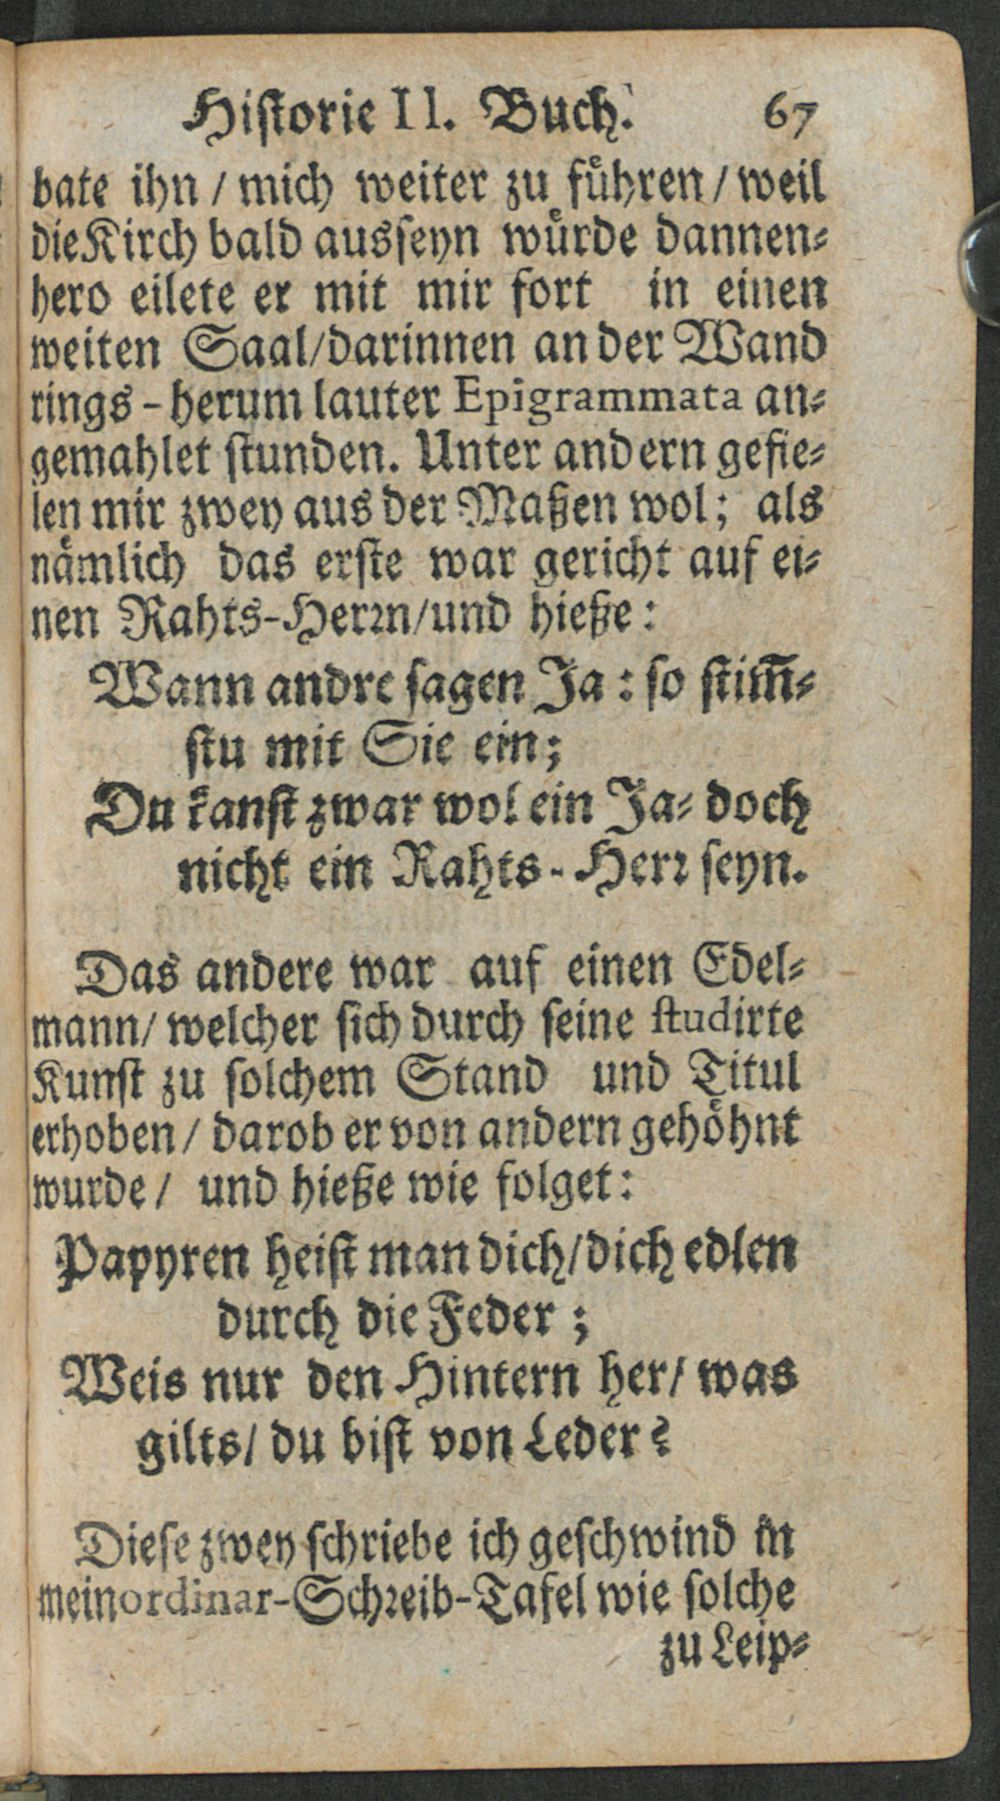 Hiſtorie II. Buch. 67
bate ihn / mich weiter zu fuͤhren / weil
die Kirch bald ausſeyn wuͤrde dannen⸗
hero eilete er mit mir fort in einen
weiten Saal/darinnen an der Wand
rings-herum lauter Epigrammata an⸗
gemahlet ſtunden. Unter andern gefie⸗
len mir zwey aus der Maßen wol; als
naͤmlich das erſte war gericht auf ei⸗
nen Rahts-Herꝛn/und hieße:
Wann andre ſagen Ja: ſo ſtim̃⸗
ſtu mit Sie ein;
Du kanſt zwar wol ein Ja⸗ doch
nicht ein Rahts-Herꝛ ſeyn.
Das andere war auf einen Edel⸗
mann/ welcher ſich durch ſeine ſtudirte
Kunſt zu ſolchem Stand und Titul
erhoben / darob er von andern gehoͤhnt
wurde / und hieße wie folget:
Papyren heiſt man dich/dich edlen
durch die Feder;
Weis nur den Hintern her/ was
gilts/ du biſt von Leder?
Dieſe zwey ſchriebe ich geſchwind in
mein ordinar-Schꝛeib-Tafel wie ſolche
zu Leip⸗